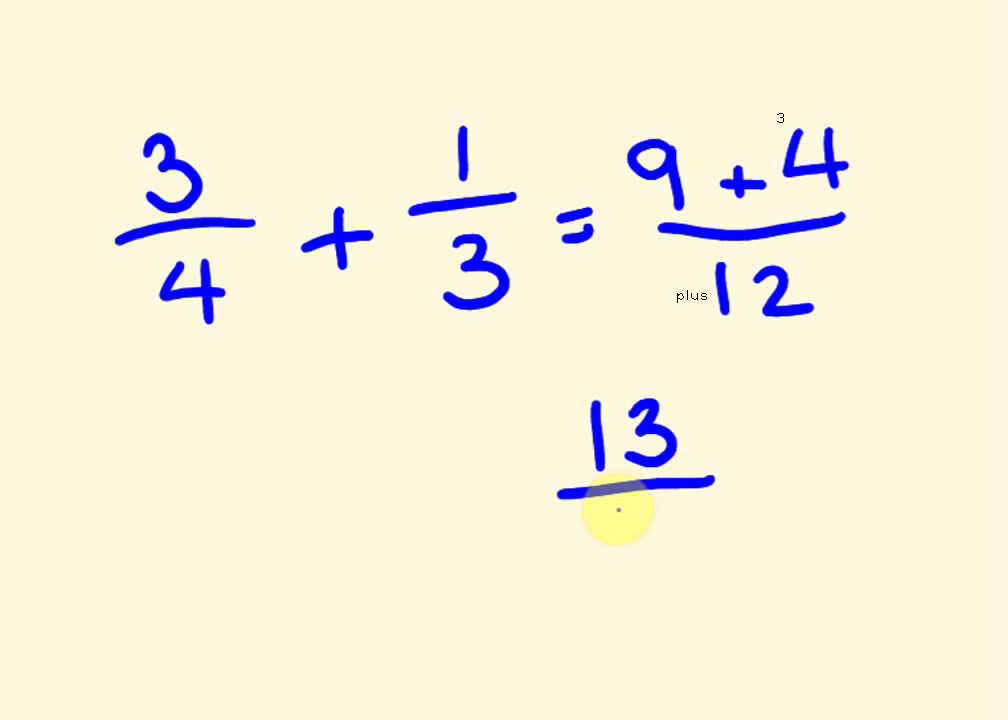 3/4 + 1/3 = 9 + 4/12
3
plus
13